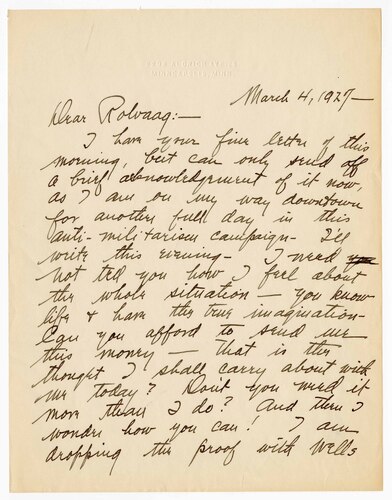 MINNEAPOLIS, MINN.
March 4, 1927—
Dear Rolvaag:—
I have your fine letter of this
morning, but can only send off
a brief acknowledgement of it now,
as I am on my way downtown
for another full day in this
anti-militarism campaign— I'll
write this evening— I need
not tell you how I feel about
the whole situation — you know
life & have the true imagination—
Can you afford to send me
this money — that is the
thought I shall carry about with
me today? Don't you need it
more than I do? And then I
wonder how you can! I am
dropping the proof with Wells